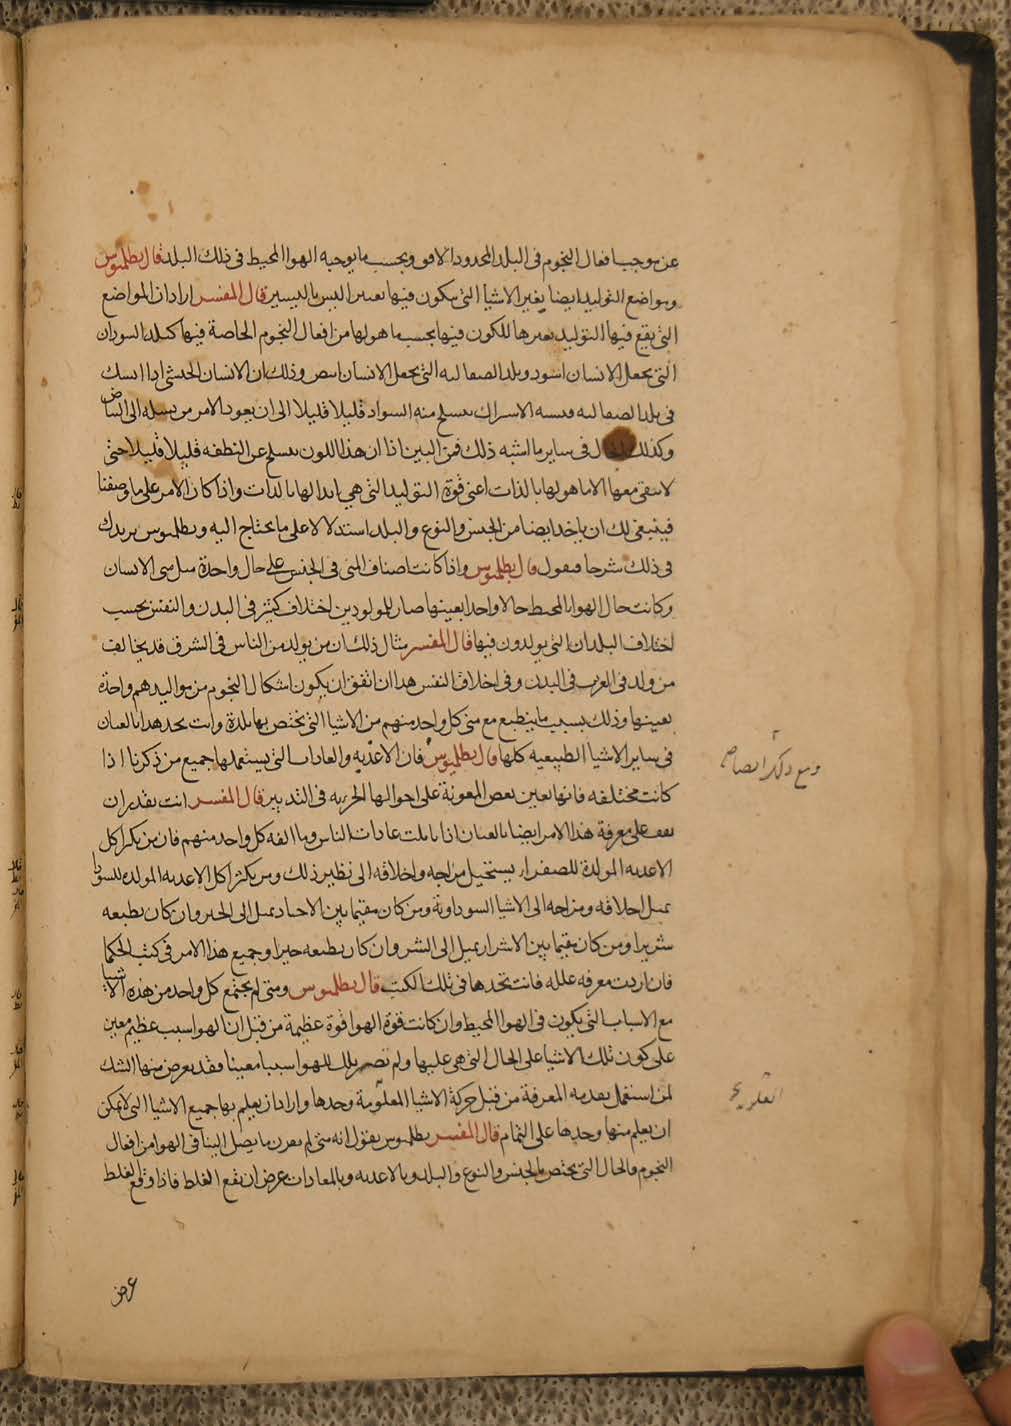 عن موجب افعال النجوم فى البلد المحدود الافق وبحسب ما يوجبه الهوا المحيط فى ذلك البلد قال بطلميوس
ومواضع التوليد ايضا يغير الاشيا التى يتكون فيها تغييرا ليس باليسير قال المفسر اراد ان المواضع
التى يقع فيها التوليد تغيرها للكون فيها بحسب ما هو لها من افعال النجوم الخاصة فيها كبلد السودان
التى يجعل الانسان اسود وبلد الصقالبه التى يجعل الانسان ابيض وذلك ان الانسان الحبشى اذا اسكن
فى بلد الصقالبه ينسلخ منه السواد قليلا قليلا الى ان يعود الامر من نسله الى البياض
وكذلك الحال فى ساير ما اشبه ذلك فمن البين اذا ان هذا اللون ينسلخ عن النطفه قليلا قليلا حتى
لا يبقى معها الا ما هو لها بالذات اعنى قوة التوليد التى هى ابدا لها بالذات واذا كان الامر على ما وصفنا
فينبغى لك ان ياخد ايضا من الجنس والنوع والبلد استدلالا على ما يحتاج اليه وبطلميوس يريدك
فى ذلك شرحا فيقول قال بطلميوس واذا كانت اصناف المنى فى الجنس على حال واحدة مثل منى الانسان
وكانت حال الهوا المحيط حالا واحدا بعينها صار للمولودين اختلاف كثير فى البدن والنفس بحسب
اختلاف البلدان التى يولدون فيها قال المفسر مثال ذلك ان من يولد من الناس فى الشرق قد يخالف
من ولد فى الغرب فى البدن وفى اخلاق النفس هذا ان اتفق ان يكون اشكال النجوم من مواليدهم واحدة
بعينها وذلك بسبب ما ينطبع مع منى كل واحد منهم من الاشيا التى تختص بها بلدة وانت تجد هذا بالعيان
فى ساير الاشيا الطبيعيه كلها قال بطلميوس فان الاغذيه والعادات التى يستعملها جميع من ذكرنا اذا
كانت مختلفه فانها تعين بعض المعونة على احوالها الجزييه فى التدبير قال المفسر انت تقدر ان
تقف على معرفة هذا الامر ايضا بالعيان اذا تاملت عادات الناس وما الفه كل واحد منهم فان من يكثر اكل
الاغذيه المولدة للصفرا يستحيل مزاجه واخلاقه الى نظير ذلك ومن يكثر اكل الاغذيه المولده للسودا
يميل اخلاقه ومزاجه الى الاشيا السوداوية ومن كان مقيما بين الاخيار يميل الى الخير وان كان بطبعه
شريرا ومن كان مقيما بين الاشرار يميل الى الشر وان كان بطبعه خيرا وجميع هذا الامر فى كتب الحكما
فان اردت معرفه علله فانت تجدها فى تلك الكتب قال بطلميوس ومتى لم يجتمع كل واحد من هذه الاشيا
مع الاسباب التى يكون فى الهوا المحيط وان كانت قوة الهوا قوة عظيمة من قبل ان الهوا سبب عظيم معين
على كون تلك الاشيا على الحال التى هى عليها ولم تصر تلك للهوا سببا معينا فقد يعرض منها الشك
لمن استعمل تقدمه المعرفة من قبل حركة الاشيا المعلومة وحدها واراد ان يعلم بها جميع الاشيا التى لا يمكن
ان يعلم منها وحدها على التمام قال المفسر بطلميوس يقول انه متى لم يقرن ما يصل الينا فى الهوا من افعال
النجوم فالحال التى يختص بالجنس والنوع والبلد وبالاغذيه وبالعادات عرض ان يقع الغلط فاذا وقع الغلط
عرض
ومع ذلك ايضا